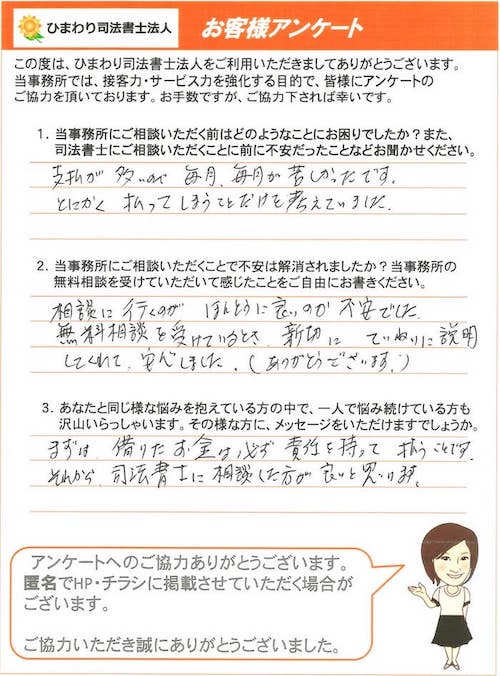 ひまわり司法書士法人 お客様アンケート
この度は、ひまわり司法書士法人をご利用いただきましてありがとうございます。
当事務所では、接客力・サービス力を強化する目的で、皆様にアンケートの
ご協力を頂いております。お手数ですが、ご協力下されば幸いです。
1. 当事務所にご相談いただく前はどのようなことにお困りでしたか？また、
司法書士にご相談いただくことに前に不安だったことなどお聞かせください。
支払が多いので毎月、毎月が苦しかったです。
とにかく払ってしまうことだけを考えていました。
2. 当事務所にご相談いただくことで不安は解消されましたか？当事務所の
無料相談を受けていただいて感じたことをご自由にお書きください。
相談に行くのがほんとうに良いのか不安でした
無料相談を受けているとき、新切にていねいに説明
してくれて、安心しました。(ありがとうございます。)
3. あなたと同じ様な悩みを抱えている方の中で、一人で悩み続けている方も
沢山いらっしゃいます。その様な方に、メッセージをいただけますでしょうか。
まずは、借りたお金は必ず責任を持って払うことです。
それから、司法書士に相談した方が良いと思います。
アンケートへのご協力ありがとうございます。
匿名でHP・チラシに掲載させていただく場合が
ございます。
ご協力いただき誠にありがとうございました。